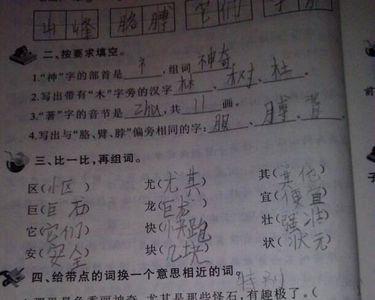 山 峰 胳 膊 它 们
二、按要求填空。
1."神"字的部首是 礻 ,组词 神奇 。
2.写出带有"木"字旁的汉字 林 、 树 、 杜
3."著"字的音节是 zhù ,共 11 画。
4.写出与"胳、臂、脖"偏旁相同的字: 胆 、 膊 、 背
三、比一比,再组词。
区(小区) 尤(尤其) 其(其他)
巨(巨石) 龙(巨龙) 宜(便宜)
它(它们) 快(快跑) 壮(强壮)
安(安全) 块(几块) 状(状元)
四、给带点的词换一个意思相近的词。
特别
尤其是那些怪石,有趣极了。(